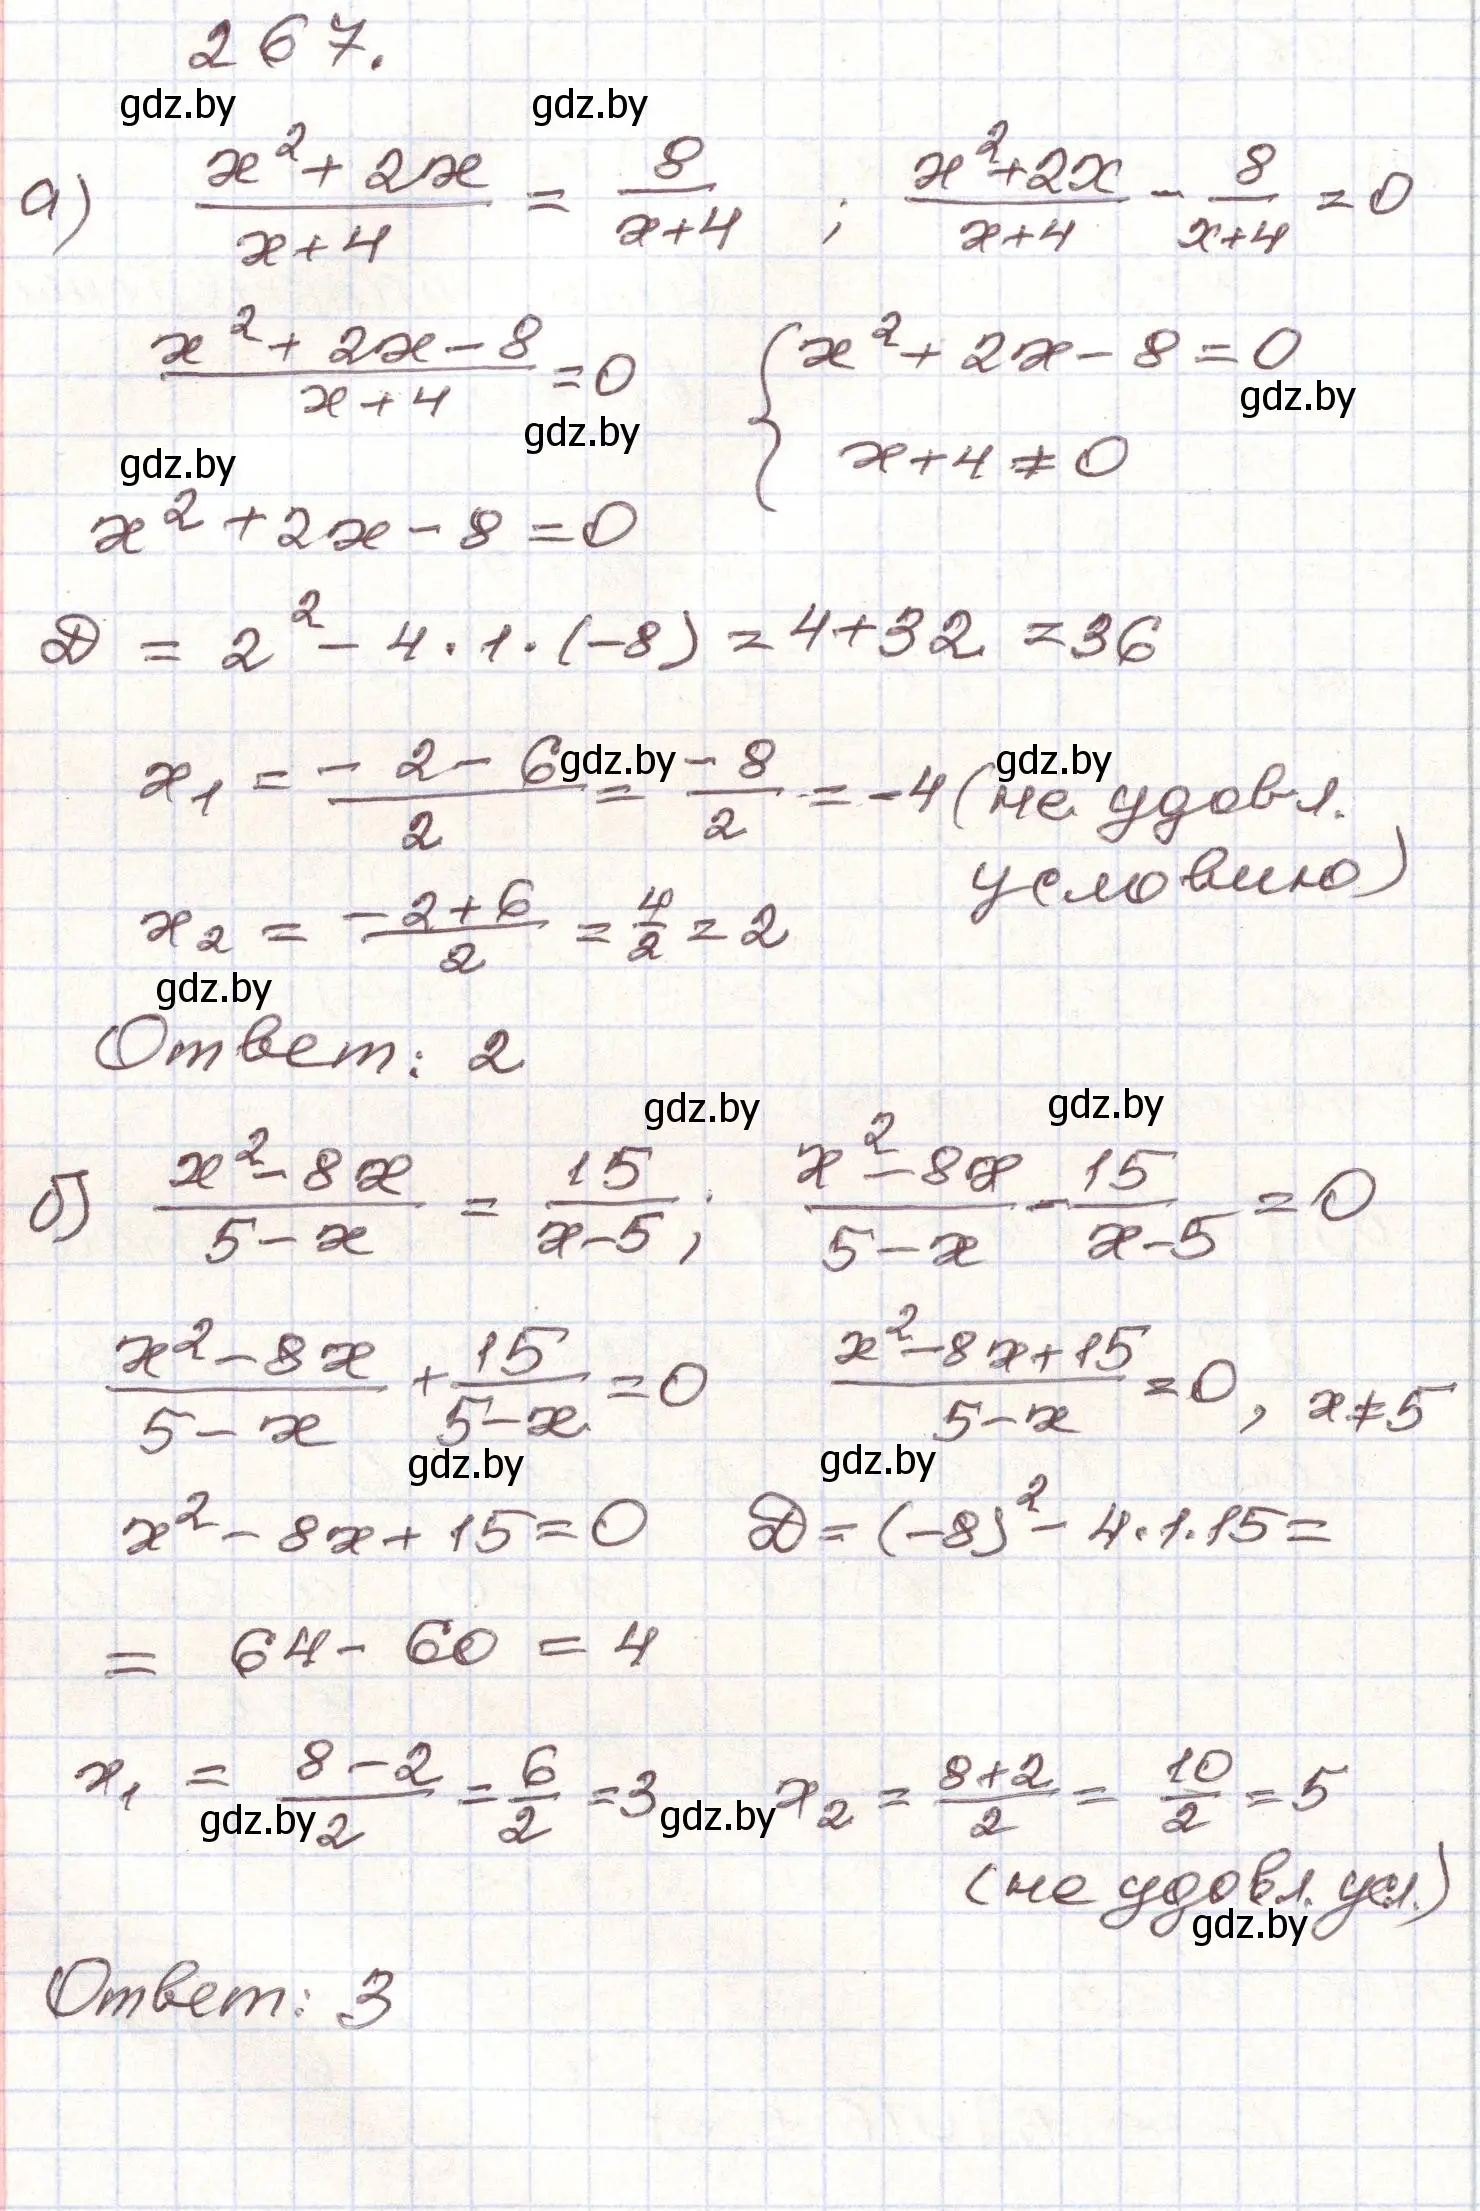 267.
gdz.by gdz.by
а) (x² + 2x)/(x+4) = 8/(x+4) ; (x²+2x)/(x+4) - 8/(x+4) = 0
(x² + 2x - 8)/(x+4) = 0 { x² + 2x - 8 = 0
gdz.by
x+4 ≠ 0
gdz.by
gdz.by
x² + 2x - 8 = 0
D = 2² - 4 · 1 · (-8) = 4+32 = 36
gdz.by gdz.by
x₁ = (-2-6)/2 = -8/2 = -4 (не удовл.
условию)
x₂ = (-2+6)/2 = 4/2 = 2
gdz.by
Ответ: 2
gdz.by gdz.by
б) (x²-8x)/(5-x) = 15/(x-5); (x²-8x)/(5-x) - 15/(x-5) = 0
(x²-8x)/(5-x) + 15/(5-x) = 0 (x²-8x+15)/(5-x) = 0, x≠5
gdz.by gdz.by
x² - 8x + 15 = 0 D = (-8)² - 4·1·15 =
= 64 - 60 = 4
x₁ = (8-2)/2 = 6/2 = 3 x₂ = (8+2)/2 = 10/2 = 5
gdz.by gdz.by
(не удовл. усл.)
gdz.by
Ответ: 3